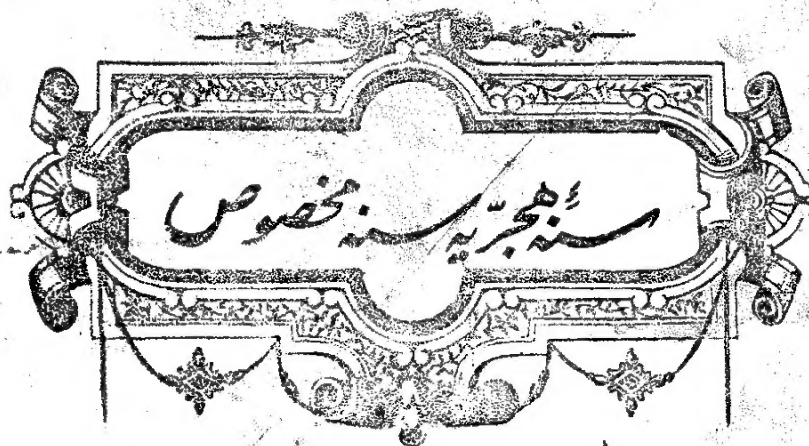 سنهٔ هجرّیه سنه مخصوص